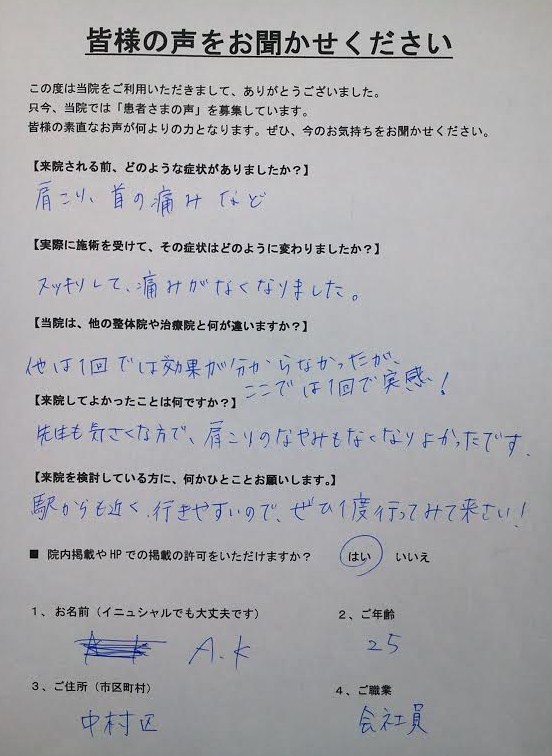 皆様の声をお聞かせください
この度は当院をご利用いただきまして、ありがとうございました。
只今、当院では「患者さまの声」を募集しています。
皆様の素直なお声が何よりの力となります。ぜひ、今のお気持ちをお聞かせください。
【来院される前、どのような症状がありましたか?】
肩こり、首の痛みなど
【実際に施術を受けて、その症状はどのように変わりましたか?】
スッキリして、痛みがなくなりました。
【当院は、他の整体院や治療院と何が違いますか?】
他は1回では効果が分からなかったが、
ここでは1回で実感!
【来院してよかったことは何ですか?】
先生も気さくな方で、肩こりのなやみもなくなりよかったです.
【来院を検討している方に、何かひとことお願いします。】
駅からも近く、行きやすいので、ぜひ1度行ってみて来さい!
■ 院内掲載やHPでの掲載の許可をいただけますか? はい いいえ
1、お名前(イニュシャルでも大丈夫です)
2、ご年齢
A.K
25
3、ご住所(市区町村)
4、ご職業
中村区
会社員